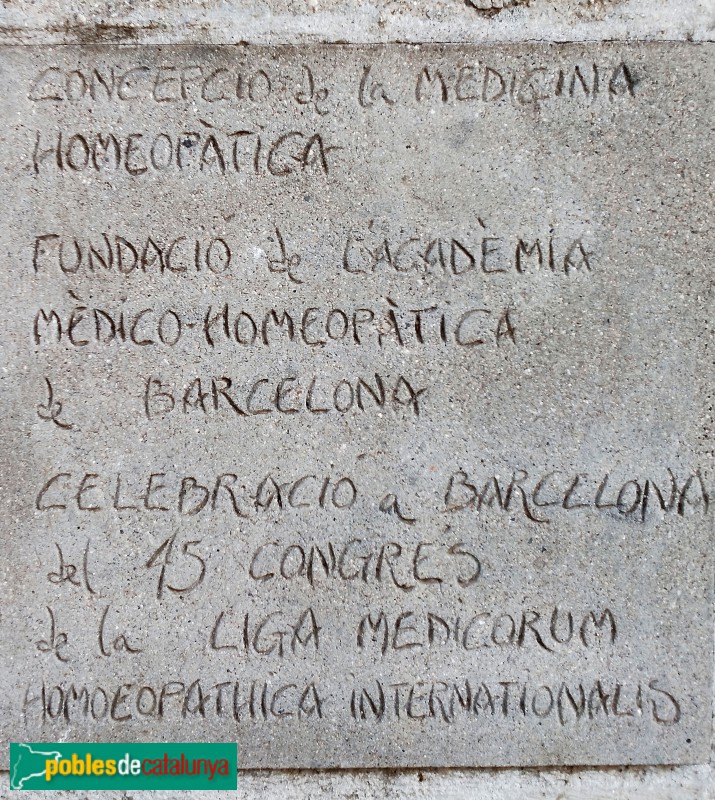 CONCEPCIO de la MEDICINA
HOMEOPÀTICA
FUNDACIÓ de L'ACADÈMIA
MÈDICO-HOMEOPÀTICA
de BARCELONA
CELEBRACIO a BARCELONA
del 45 CONGRES
de la LIGA MEDICORUM
HOMOEOPATHICA INTERNATIONALIS
poblesdecatalunya